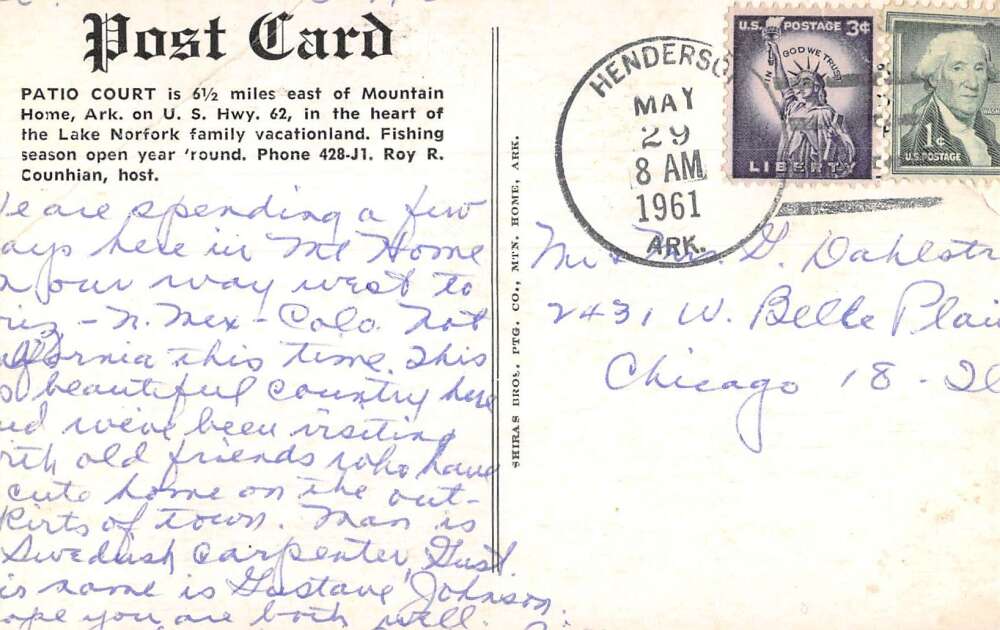 Post Card
PATIO COURT is 6½ miles east of Mountain
Home, Ark. on U. S. Hwy. 62, in the heart of
the Lake Norfork family vacationland. Fishing
season open year 'round. Phone 428-J1. Roy R.
Counhian, host.
e are spending a few
ays here in Mt Home
n our way west to
riz - N. Mex - Colo. Not
alifornia this time. This
s beautiful country here
nd we've been visiting
ith old friends who have
cute home on the out-
kirts of town. Man is
Swedish carpenter, Gust.
is name is Gustave Johnson.
ope you are both well.
SHIRAS BROS. PTG. CO., MTN. HOME, ARK.
HENDERSO
MAY
29
8 AM
1961
ARK.
U.S. POSTAGE 3¢
IN GOD WE TRUST
LIBERTY
1¢
U.S. POSTAGE
Mr + Mrs. G. Dahlstr
2431 W. Belle Plai
Chicago 18 - Il